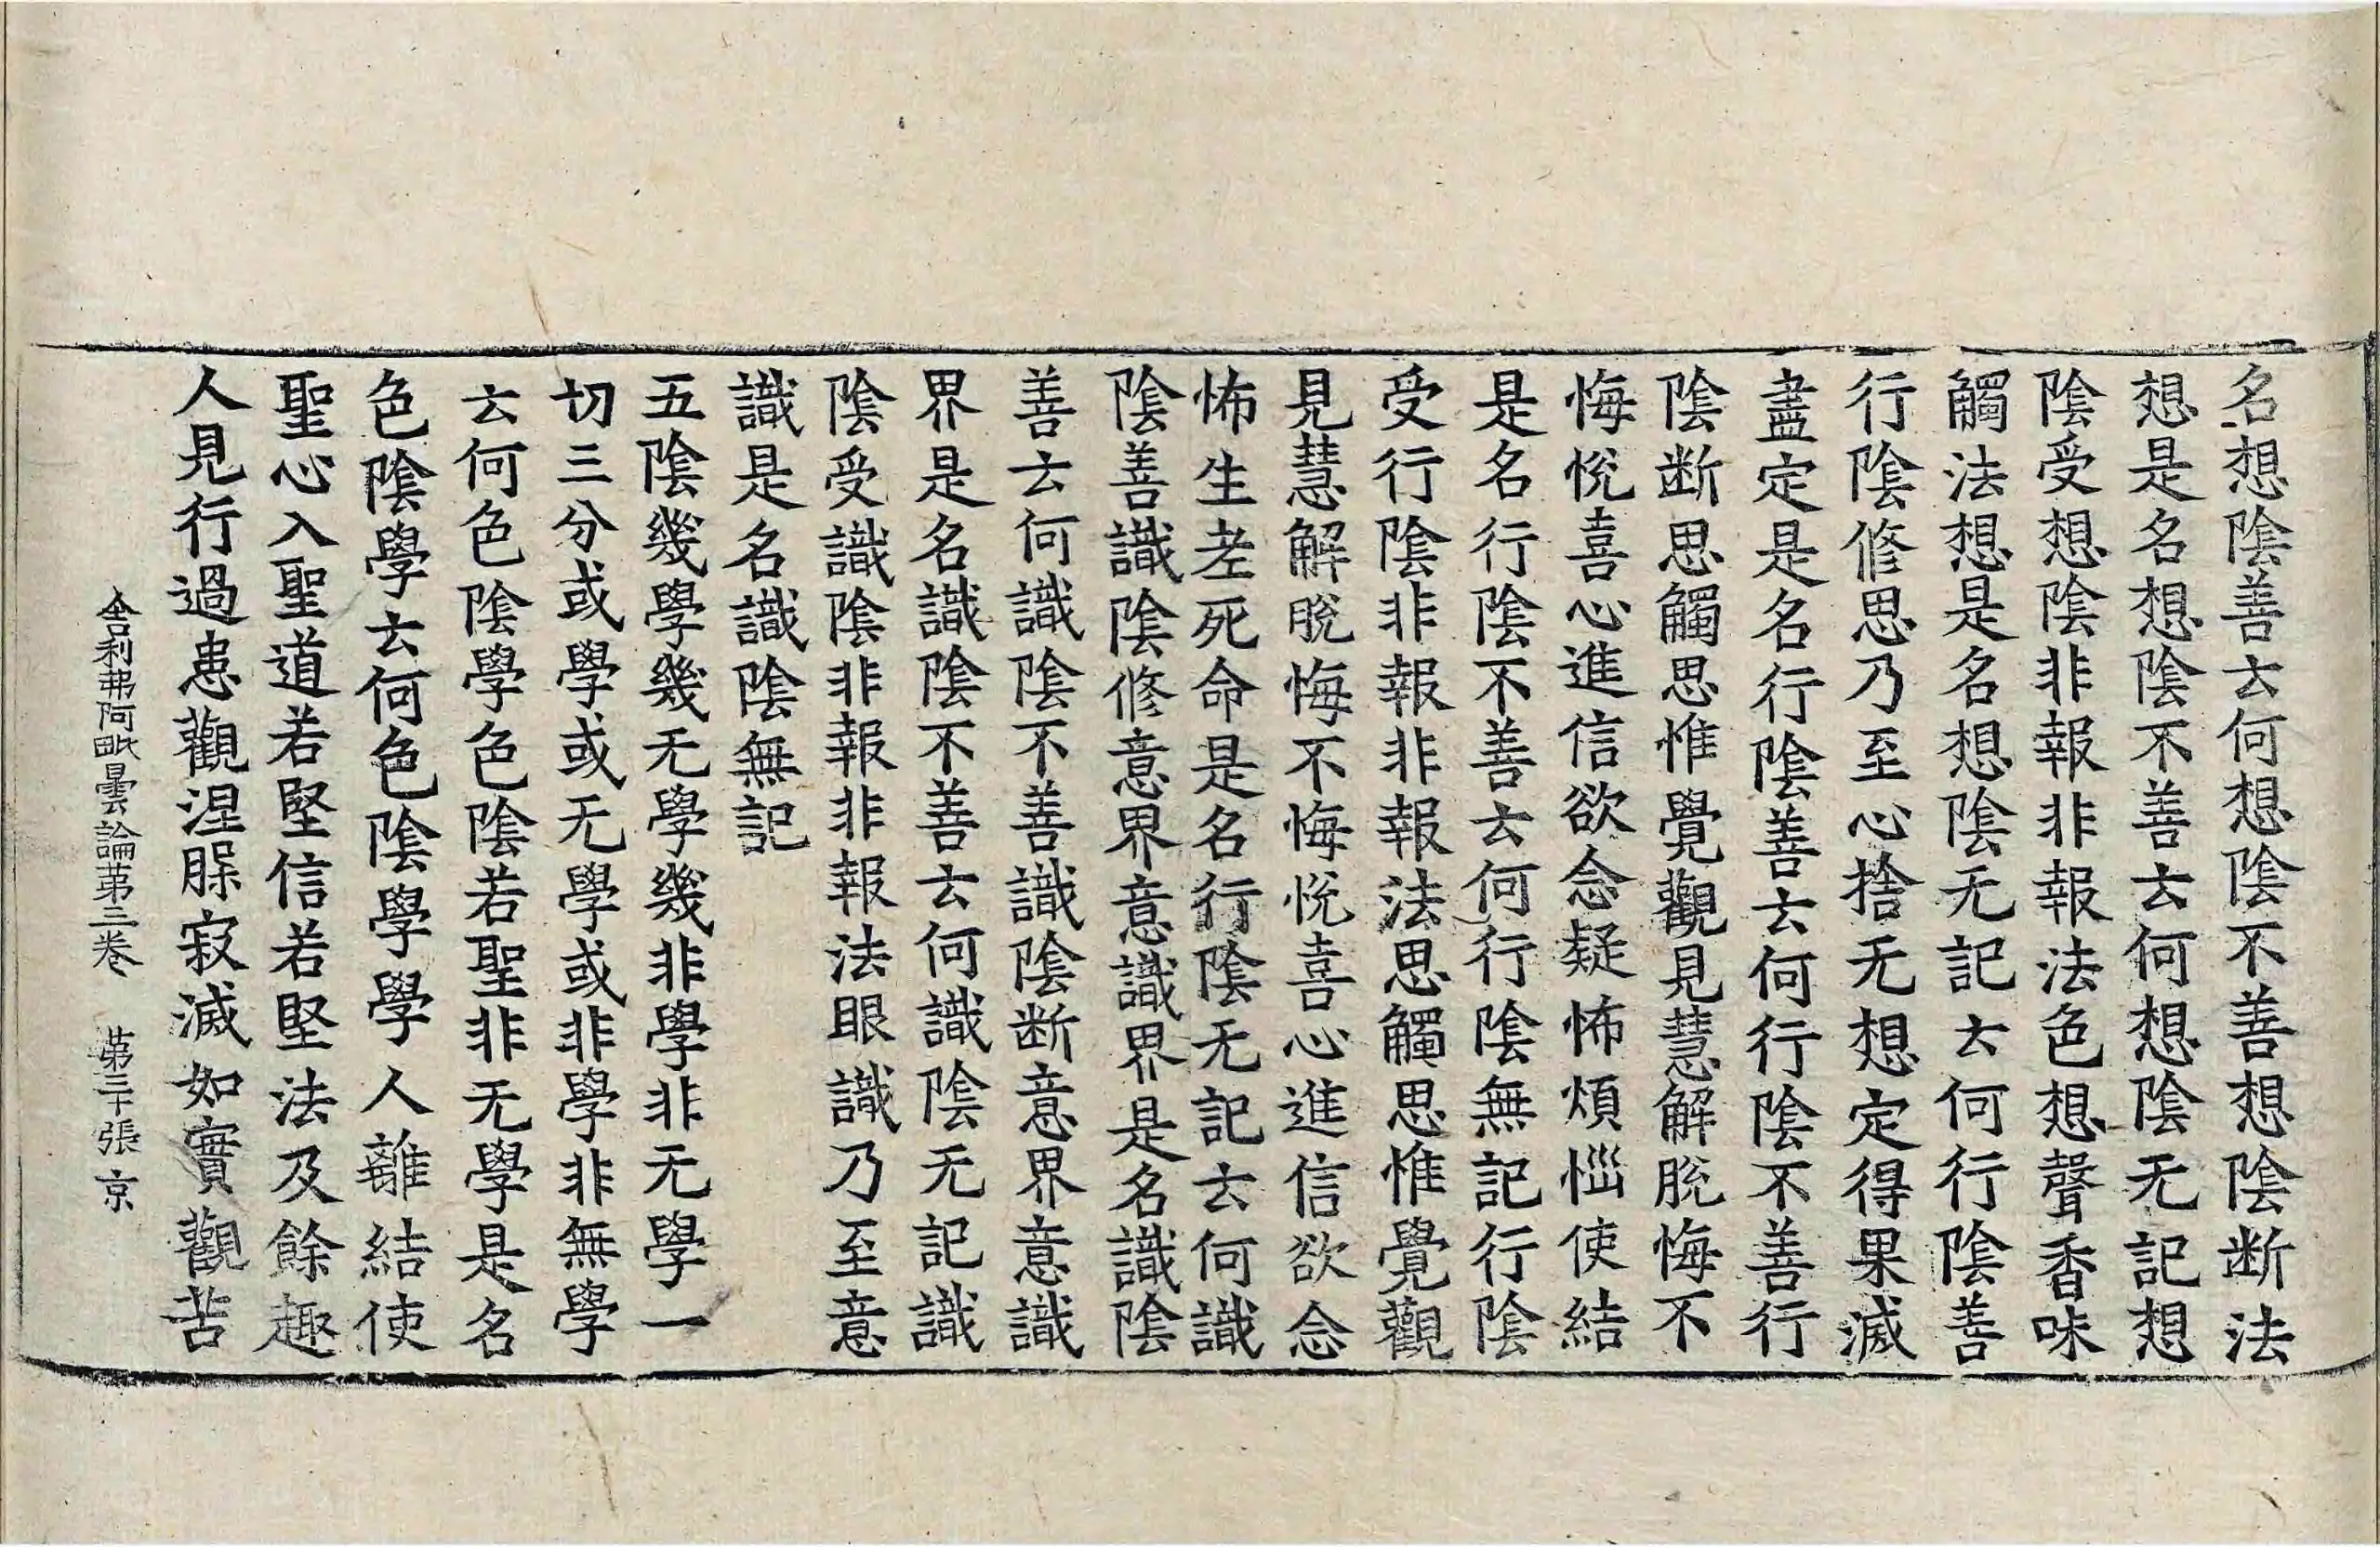 名想陰善去何想陰不善想陰断法
想是名想陰不善去何想陰无記想
陰受想陰非報非報法色想聲香味
觸法想是名想陰无記去何行陰善
行陰修思乃至心捨无想定得果滅
盡定是名行陰善去何行陰不善行
陰断思觸思惟覺觀見慧解脫悔不
悔悅喜心進信欲念疑怖煩惱使結
是名行陰不善去何行陰無記行陰
受行陰非報非報法思觸思惟覺觀
見慧解脫悔不悔悅喜心進信欲念
怖生老死命是名行陰无記去何識
陰善識陰修意界意識界是名識陰
善去何識陰不善識陰断意界意識
界是名識陰不善去何識陰无記識
陰受識陰非報非報法眼識乃至意
識是名識陰無記
五陰幾學幾无學幾非學非无學一
切三分或學或无學或非學非無學
去何色陰學色陰若聖非无學是名
色陰學去何色陰學學人離結使
聖心入聖道若堅信若堅法及餘趣
人見行過患觀涅槃寂滅如實觀苦
舍利弗阿毗曇論第三卷 第二十張 京